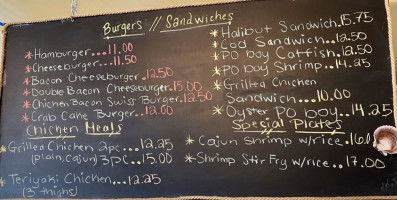 Burgers // Sandwiches
*Hamburger...11.00
*Cheeseburger...11.50
*Bacon Cheeseburger.12.50
*Double Bacon Cheeseburger.15.00
*Chicken Bacon Swiss Burger.12.50
*Crab Cake Burger..12.00
*Halibut Sandwich.15.75
*Cod Sandwich..12.50
*Po boy Catfish.12.50
*Po boy Shrimp..14.25
*Grilled Chicken
Sandwich...10.00
*Oyster Po boy..14.25
Chicken Meals
*Grilled Chicken 2pc...12.25
(plain, cajun) 3pc..15.00
*Teriyaki Chicken...12.25
(3 thighs)
Special Plates
*Cajun Shrimp w/rice.16.0
*Shrimp Stir Fry w/rice..17.00